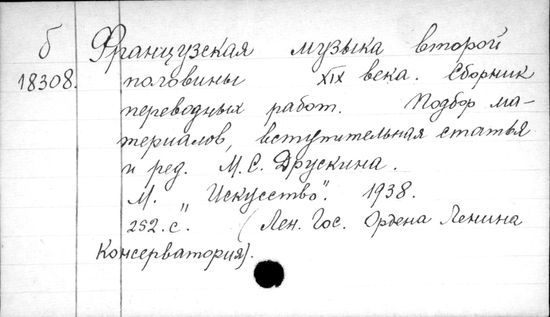 б Французская музыка второй
18308. половины XIX века. Сборник
переводных работ. Подбор ма-
териалов, вступительная статья
и ред. М.С. Друскина.
М. "Искусство". 1938.
252.с. (Лен. Гос. Ордена Ленина
Консерватория).